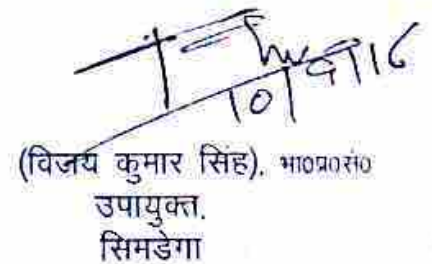 10/6/16
(विजय कुमार सिंह), भा०प्र०से०
उपायुक्त,
सिमडेगा